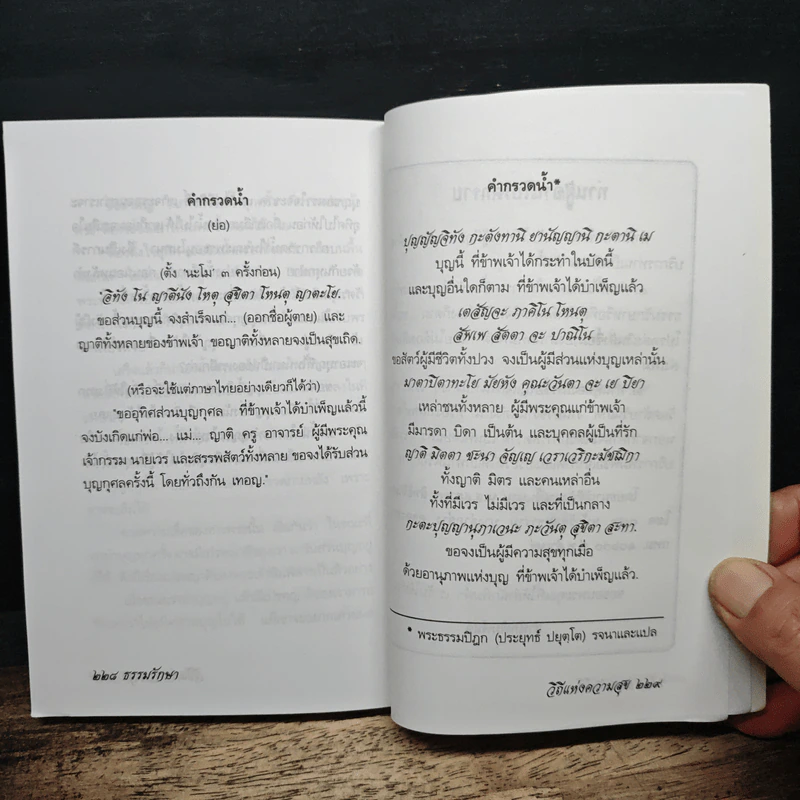 คำกรวดน้ำ
(ย่อ)
(ตั้ง 'นะโม' ๓ ครั้งก่อน)
"อิทัง โน ญาตีนัง โหตุ สุขิตา โหนตุ ญาตะโย.
ขอส่วนบุญนี้ จงสำเร็จแก่... (ออกชื่อผู้ตาย) และ
ญาติทั้งหลายของข้าพเจ้า ขอญาติทั้งหลายจงเป็นสุขเถิด.
(หรือจะใช้แต่ภาษาไทยอย่างเดียวก็ได้ว่า)
"ขออุทิศส่วนบุญกุศล ที่ข้าพเจ้าได้บำเพ็ญแล้วนี้
จงบังเกิดแก่พ่อ... แม่... ญาติ ครู อาจารย์ ผู้มีพระคุณ
เจ้ากรรม นายเวร และสรรพสัตว์ทั้งหลาย ขอจงได้รับส่วน
บุญกุศลครั้งนี้ โดยทั่วถึงกัน เทอญ."
๒๒๘ ธรรมรักษา
คำกรวดน้ำ*
ปุญญัญจิทัง กะตังทานิ ยานัญญานิ กะตานิ เม
บุญนี้ ที่ข้าพเจ้าได้กระทำในบัดนี้
และบุญอื่นใดก็ตาม ที่ข้าพเจ้าได้บำเพ็ญแล้ว
เตสัญจะ ภาคิโน โหนตุ
สัพเพ สัตตา จะ ปาณิโน
ขอสัตว์ผู้มีชีวิตทั้งปวง จงเป็นผู้มีส่วนแห่งบุญเหล่านั้น
มาตาปิตาทะโย มัยหัง คุณะวันตา จะ เย ปิยา
เหล่าชนทั้งหลาย ผู้มีพระคุณแก่ข้าพเจ้า
มีมารดา บิดา เป็นต้น และบุคคลผู้เป็นที่รัก
ญาติ มิตตา ชะนา จัญเญ เวราเวริกะมัชฌิกา
ทั้งญาติ มิตร และคนเหล่าอื่น
ทั้งที่มีเวร ไม่มีเวร และที่เป็นกลาง
กะตะปุญญานุภาเวนะ ภะวันตุ สุขิตา สะทา.
ขอจงเป็นผู้มีความสุขทุกเมื่อ
ด้วยอานุภาพแห่งบุญ ที่ข้าพเจ้าได้บำเพ็ญแล้ว.
* พระธรรมปิฎก (ประยุทธ์ ปยุตฺโต) รจนาและแปล
วิถีแห่งความสุข ๒๒๙